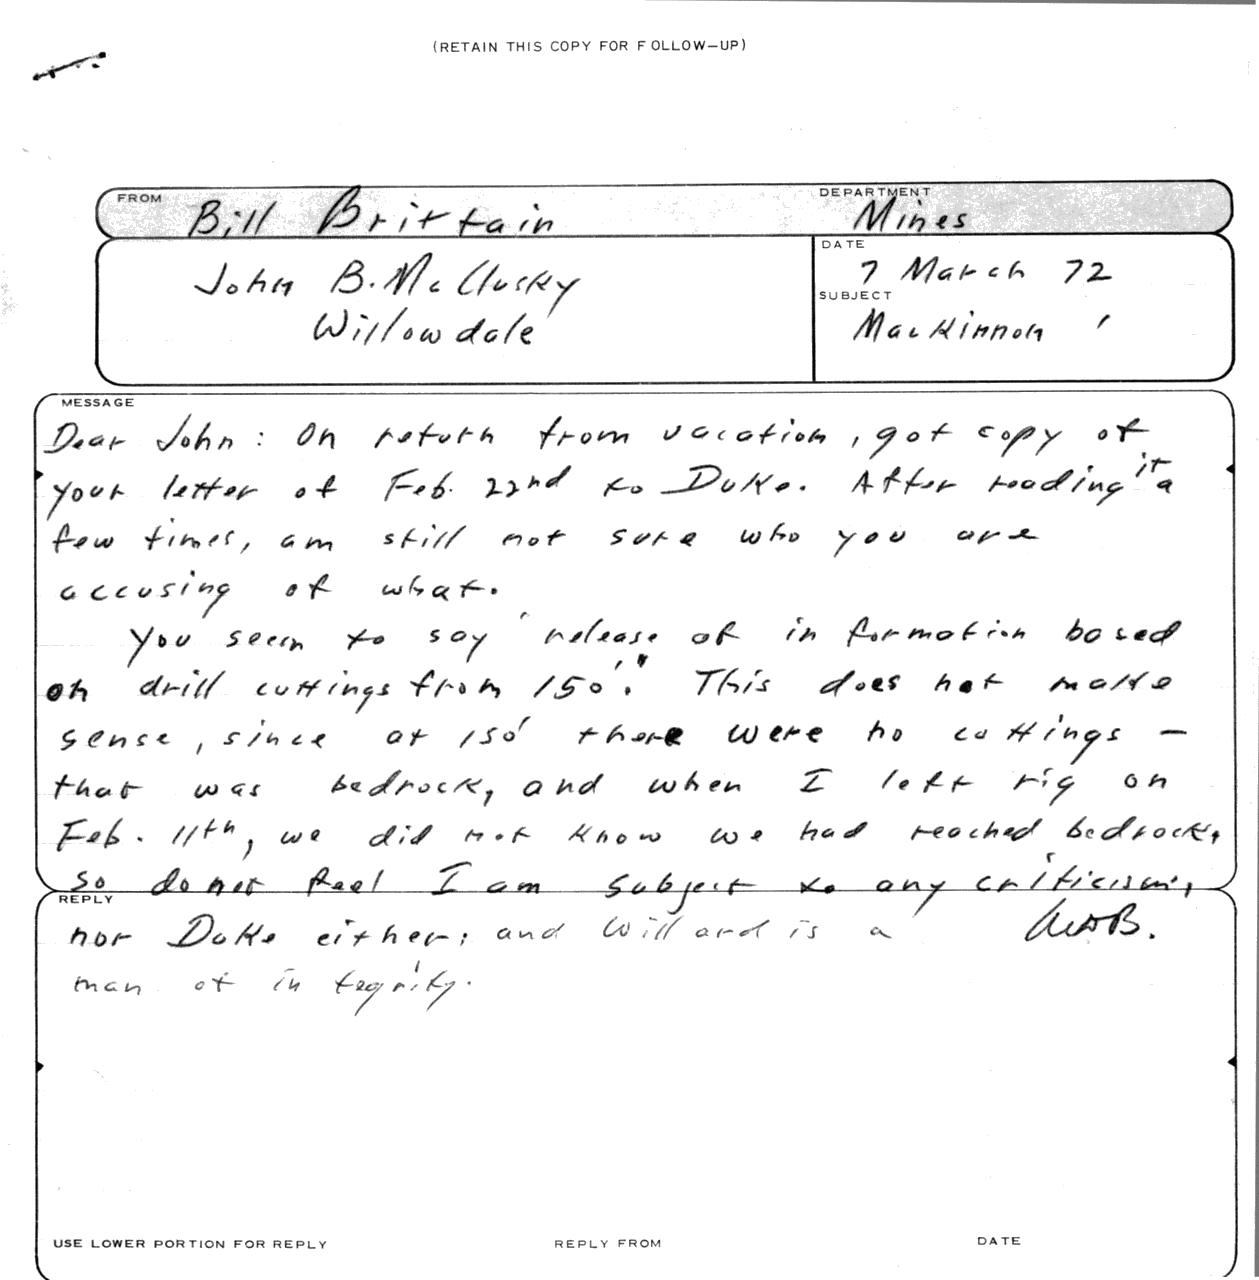 (RETAIN THIS COPY FOR FOLLOW-UP)
FROM
Bill Brittain
DEPARTMENT
Mines
John B. McClusky
Willowdale
DATE
7 March 72
SUBJECT
MacKinnon
MESSAGE
Dear John: On return from vacation, got copy of
your letter of Feb. 22nd to Duke. After reading it a
few times, am still not sure who you are
accusing of what.
You seem to say "release of information based
on drill cuttings from 150'." This does not make
sense, since at 150' there were no cuttings -
that was bedrock, and when I left rig on
Feb. 11th, we did not know we had reached bedrock,
so do not feel I am subject to any criticism,
REPLY
nor Duke either; and Willard is a
man of integrity.
WDB.
USE LOWER PORTION FOR REPLY
REPLY FROM
DATE